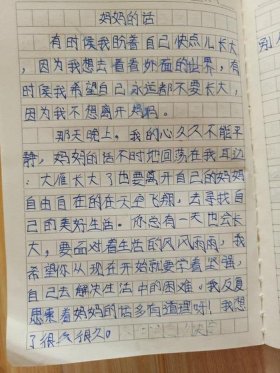 妈妈的话
有时候我盼着自己快点儿长大
，因为我想去看看外面的世界，有
时候我希望自己永远都不要长大，
因为我不想离开妈妈。
那天晚上，我的心久久不能平
静，妈妈的话不时地回荡在我耳边
：大雁长大了也要离开自己的妈妈
自由自在的在天空飞翔，去寻找自
己的美好生活。你总有一天也会长
大，要面对着生活的风风雨雨，我
希望你从现在开始就要学着坚强，
自己去解决生活中的困难。我反复
思索着妈妈的话多有道理呀！我想
了很久很久。